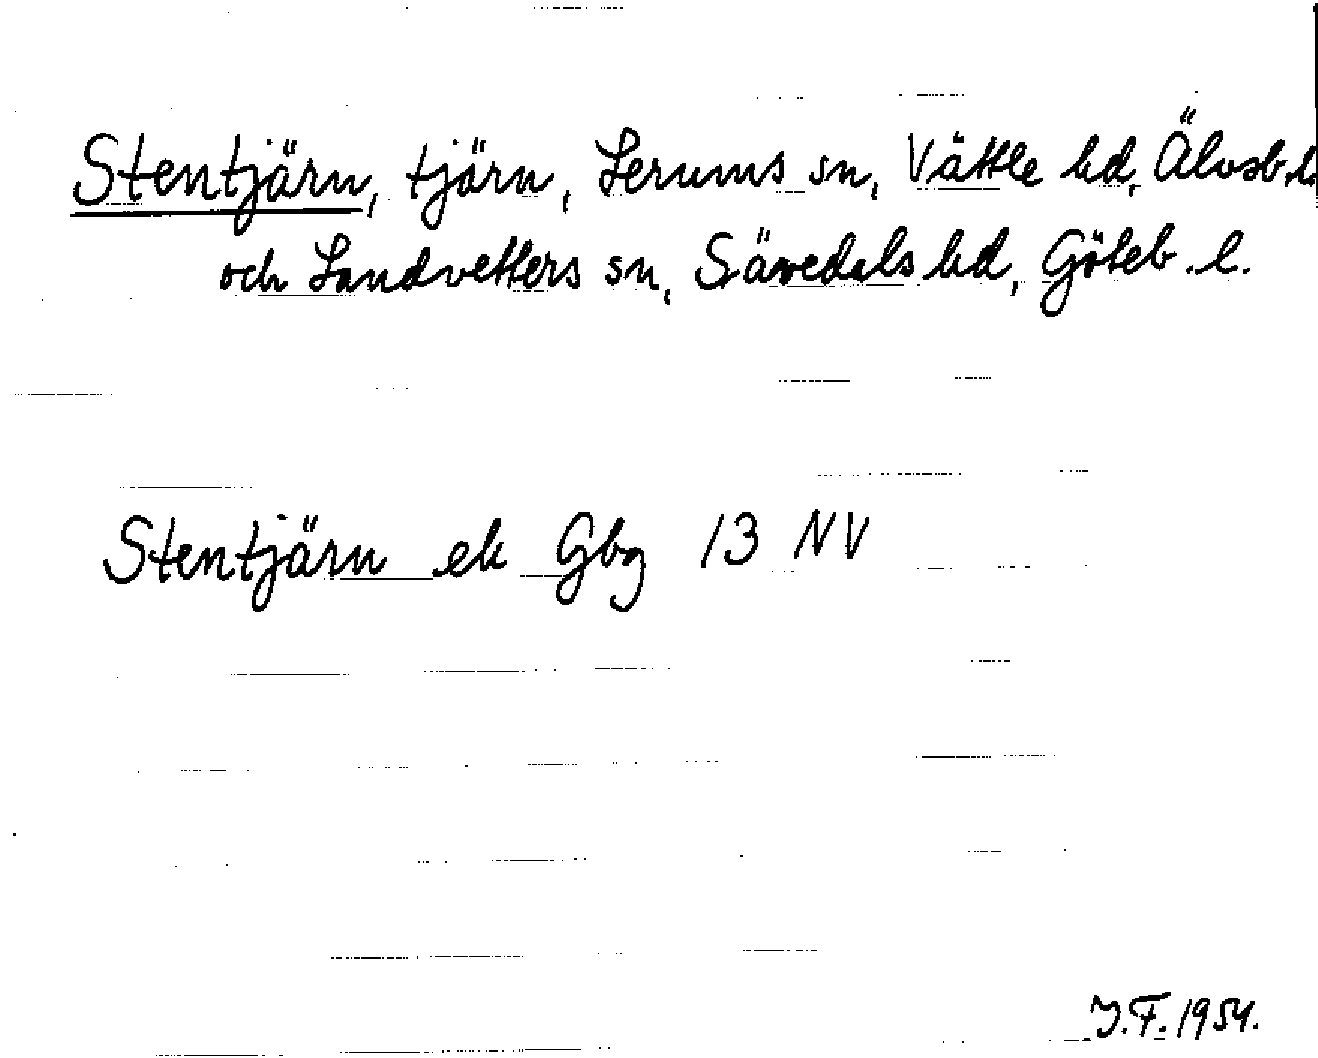 Stentjärn, tjärn, Lerums sn, Vättle hd, Älvsb. l.
och Landvetters sn, Sävedals hd, Göteb. l.
Stentjärn ek Gbg 13 NV
J.F. 1954.